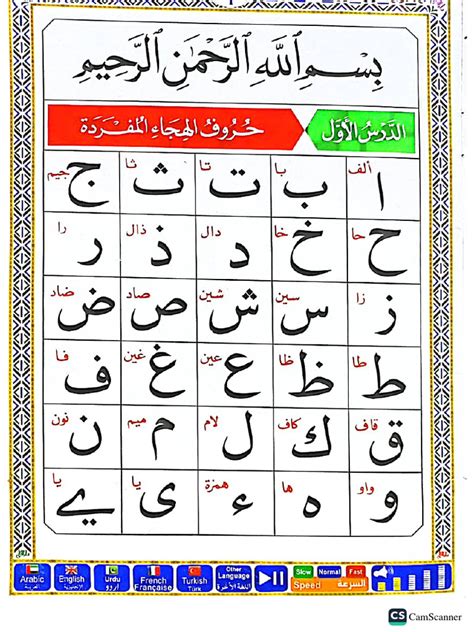 بِسْمِ ٱللَّهِ ٱلرَّحْمَٰنِ ٱلرَّحِيمِ
الدَّرْسُ الأَوَّل حُرُوفُ الهِجَاءِ المُفْرَدَة
ألف با تا ثا جيم
ا ب ت ث ج
حا خا دال ذال را
ح خ د ذ ر
زا سين شين صاد ضاد
ز س ش ص ض
طا ظا عين غين فا
ط ظ ع غ ف
قاف كاف لام ميم نون
ق ك ل م ن
واو ها همزة يا يا
و ه ء ي ے
Arabic العربية
English الإنجليزية
Urdu اُردُو
French Française
Turkish Türk
Other Language اللغة الأخرى
Slow Normal Fast
Speed السرعة
CS CamScanner